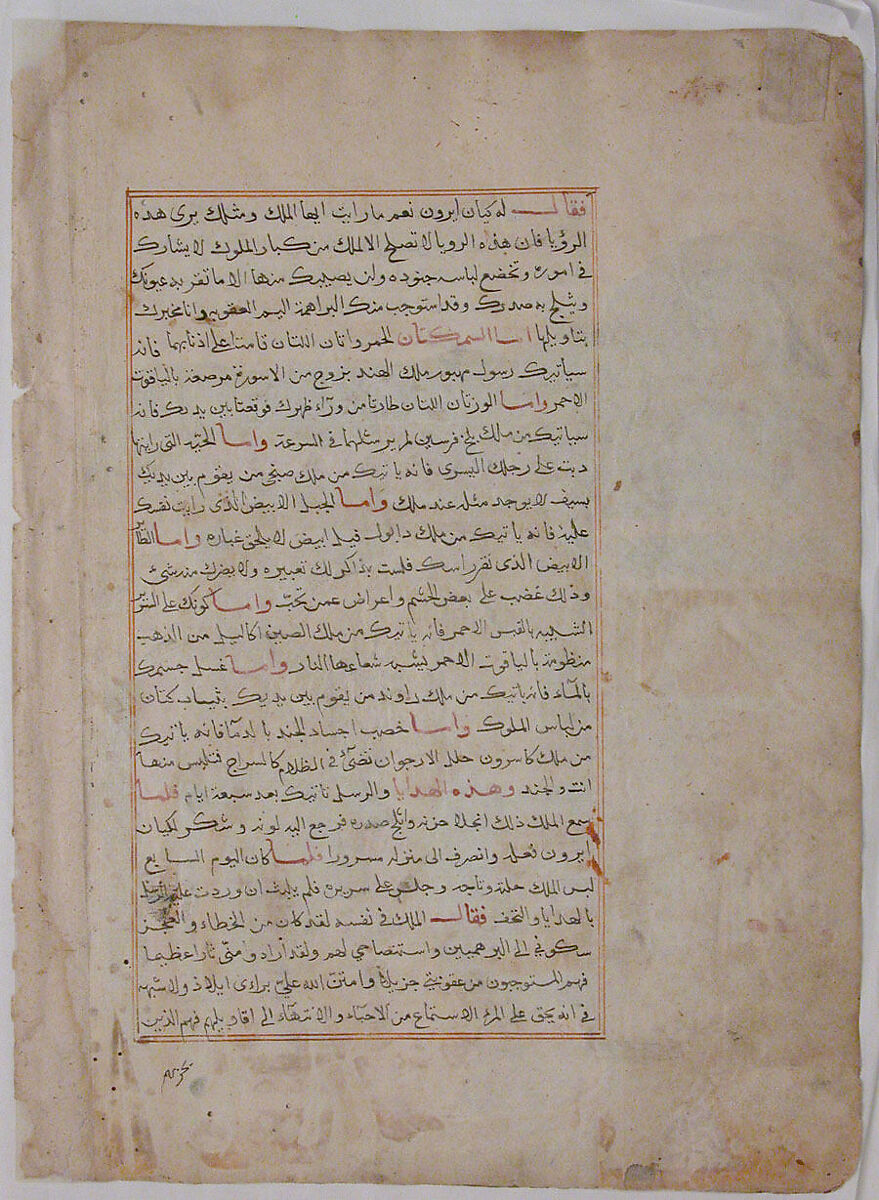 فقال له كيان ايرون نعم ما رايت ايها الملك ومثلك يرى هذه
الرؤيا فان هذه الرويا لا تصلح الا لملك من كبار الملوك لا يشارك
في اموره وتخضع لباسه جنوده ولن يصيبك منها الا ما تقر به عيونك
ويثلج به صدرك وقد استوجب منك البراهمة اليم العقوبه وانا مخبرك
بتاويلها اما السمكتان الحمروانان اللتان قامتا على اذنابهما فانه
سياتيك رسول ملك الهند بزوج من الاسورة مرصعة بالياقوت
الاحمر واما الوزتان اللتان طارتا من ورآء ظهرك فوقعتا بين يديك فانه
سياتيك من ملك بلخ فرسين لم ير مثلهما في السرعة واما الحية التي رايتها
دبت على رجلك اليسرى فانه ياتيك من ملك صنجى من يقوم بين يديك
بسيف لا يوجد مثله عند ملك واما الجبل الابيض الذى رايت نفسك
عليه فانه ياتيك من ملك فيل ابيض لا يلحق غباره واما الطائر
الابيض الذى نقر راسك فلست بذاكر لك تعبيره ولا يضرك منه شئ
وذلك غضب على بعض الحشم واعراض عمن تحب واما كونك على السرير
الشبيه بالقبس الاحمر فانه ياتيك من ملك الصين اكاليل من الذهب
منظومة بالياقوت الاحمر يشبه شعاعها النار واما غسل جسمك
بالمآء فانه ياتيك من ملك راوند من يقوم بين يديك بثياب كتان
من لباس الملوك واما خصب اجساد الجند بالدمآ فانه ياتيك
من ملك كاسرون حلل الارجوان تضئ في الظلام كالسراج فتلبس منها
انت والجند وهذه الهدايا والرسل تاتيك بعد سبعة ايام فلما
سمع الملك ذلك انجلا حزنه واثلج صدره فرجع اليه لونه وشكر لكيان
ايرون فعله وانصرف الى منزله مسرورا فلما كان اليوم السابع
لبس الملك حلته وتاجه وجلس على سريره فلم يلبث ان وردت عليه الرسل
بالهدايا والتحف فقال الملك في نفسه لقد كان من الخطاء والعجز
سكوني الى البرهميين واستنصاحي لهم ولقد اراد وامنى ثارا عظيما
فهم المستوجبون من عقوبتي جزيلا وامتن الله علي براءى ايلاذ ولا شبهه
في انه يحق على المرء الاستماع من الاحباء والانتهاء الى اقاويلهم فهم الذين